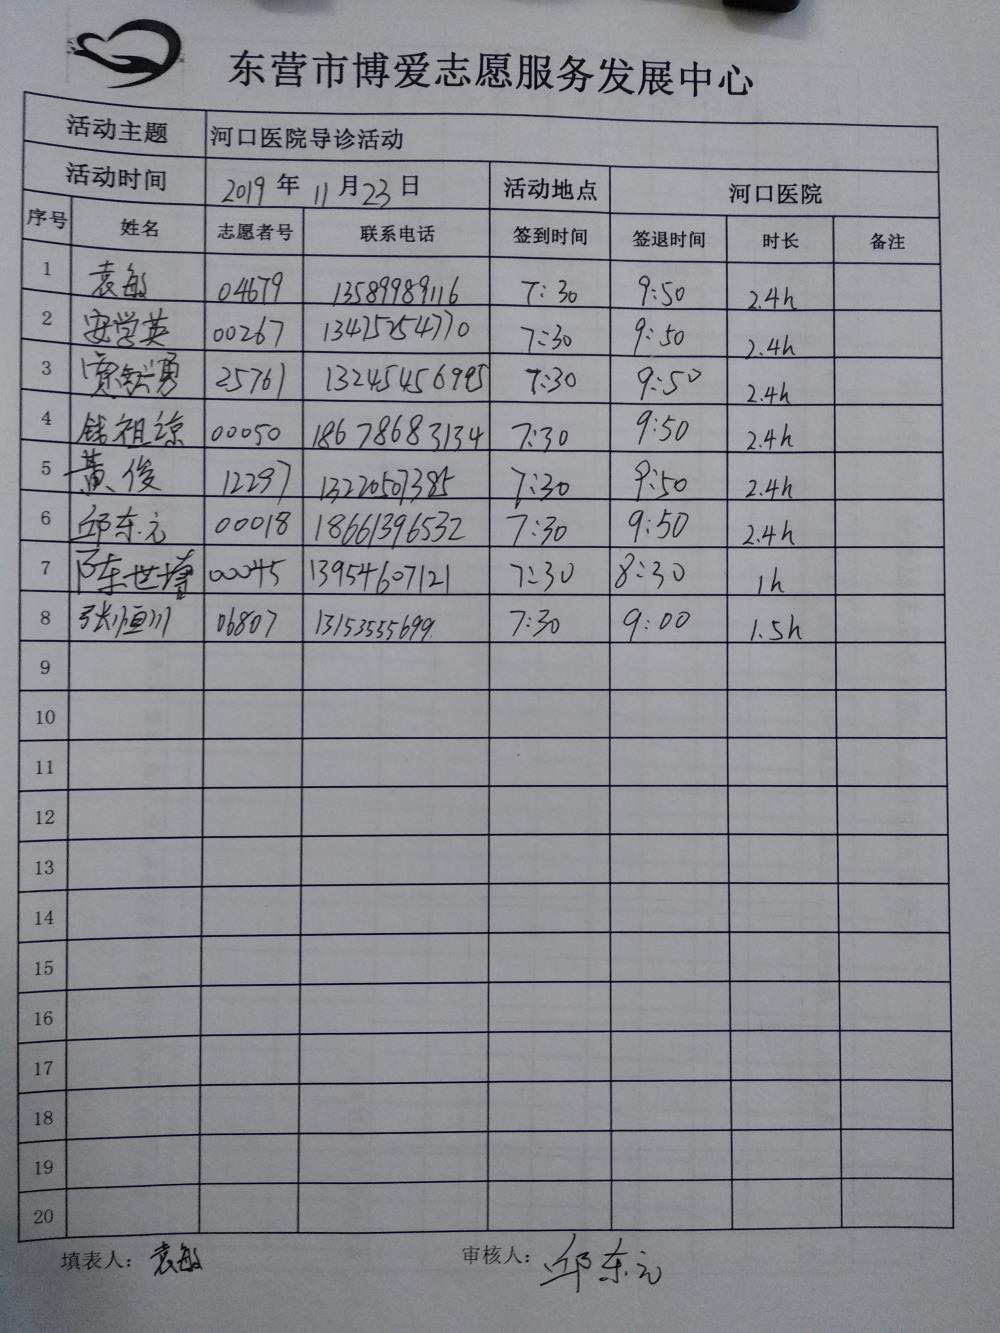 东营市博爱志愿服务发展中心
活动主题 河口医院导诊活动
活动时间 2019 年 11 月 23 日 活动地点 河口医院
序号 姓名 志愿者号 联系电话 签到时间 签退时间 时长 备注
1 袁敏 04679 13589989116 7:30 9:50 2.4h
2 安学英 00267 13475254770 7:30 9:50 2.4h
3 25761 13245456995 7:30 9:50 2.4h
4 钱祖琼 00050 18678683134 7:30 9:50 2.4h
5 黄俊 12297 13220507385 7:30 9:50 2.4h
6 邱东元 00018 18661396532 7:30 9:50 2.4h
7 陈世增 00045 13954607121 7:30 8:30 1h
8 张恒川 06807 13153555699 7:30 9:00 1.5h
9
10
11
12
13
14
15
16
17
18
19
20
填表人: 袁敏 审核人: 邱东元